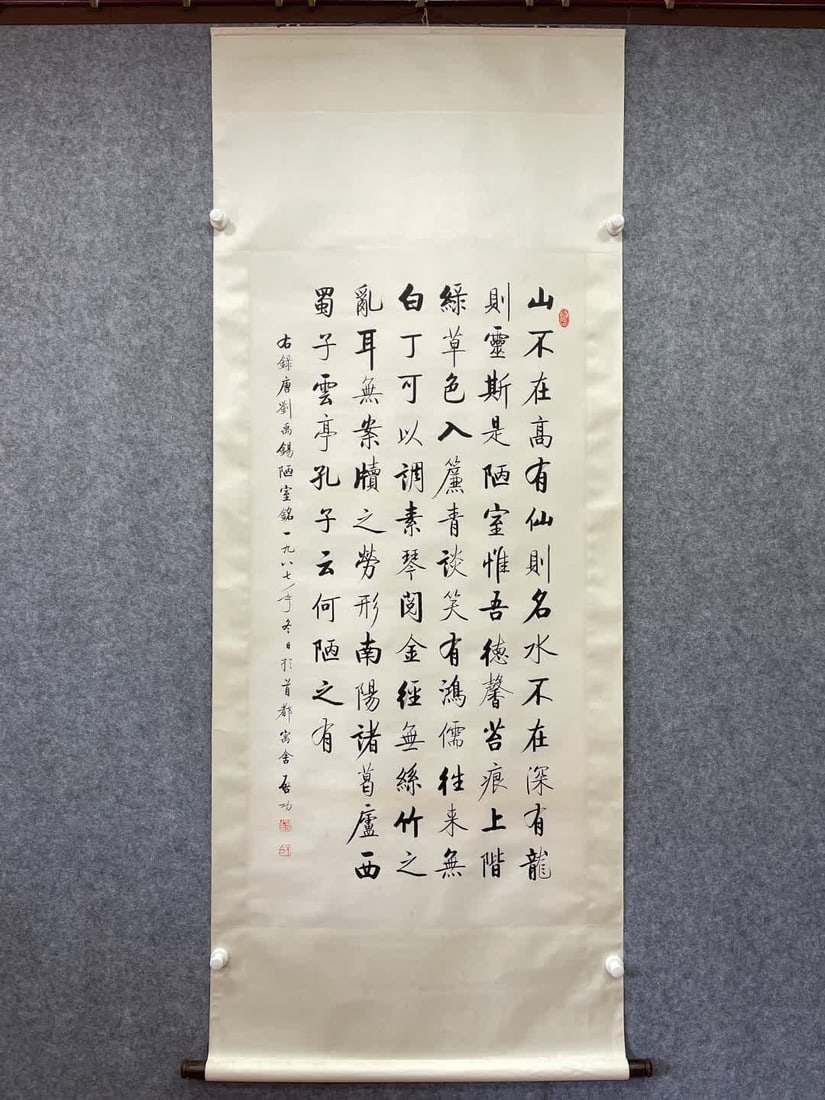 山不在高有仙則名水不在深有龍
則靈斯是陋室惟吾德馨苔痕上階
綠草色入簾青談笑有鴻儒往來無
白丁可以調素琴閱金經無絲竹之
亂耳無案牘之勞形南陽諸葛廬西
蜀子雲亭孔子云何陋之有
右錄唐劉禹錫陋室銘一九八七年冬日於首都寓舍啟功